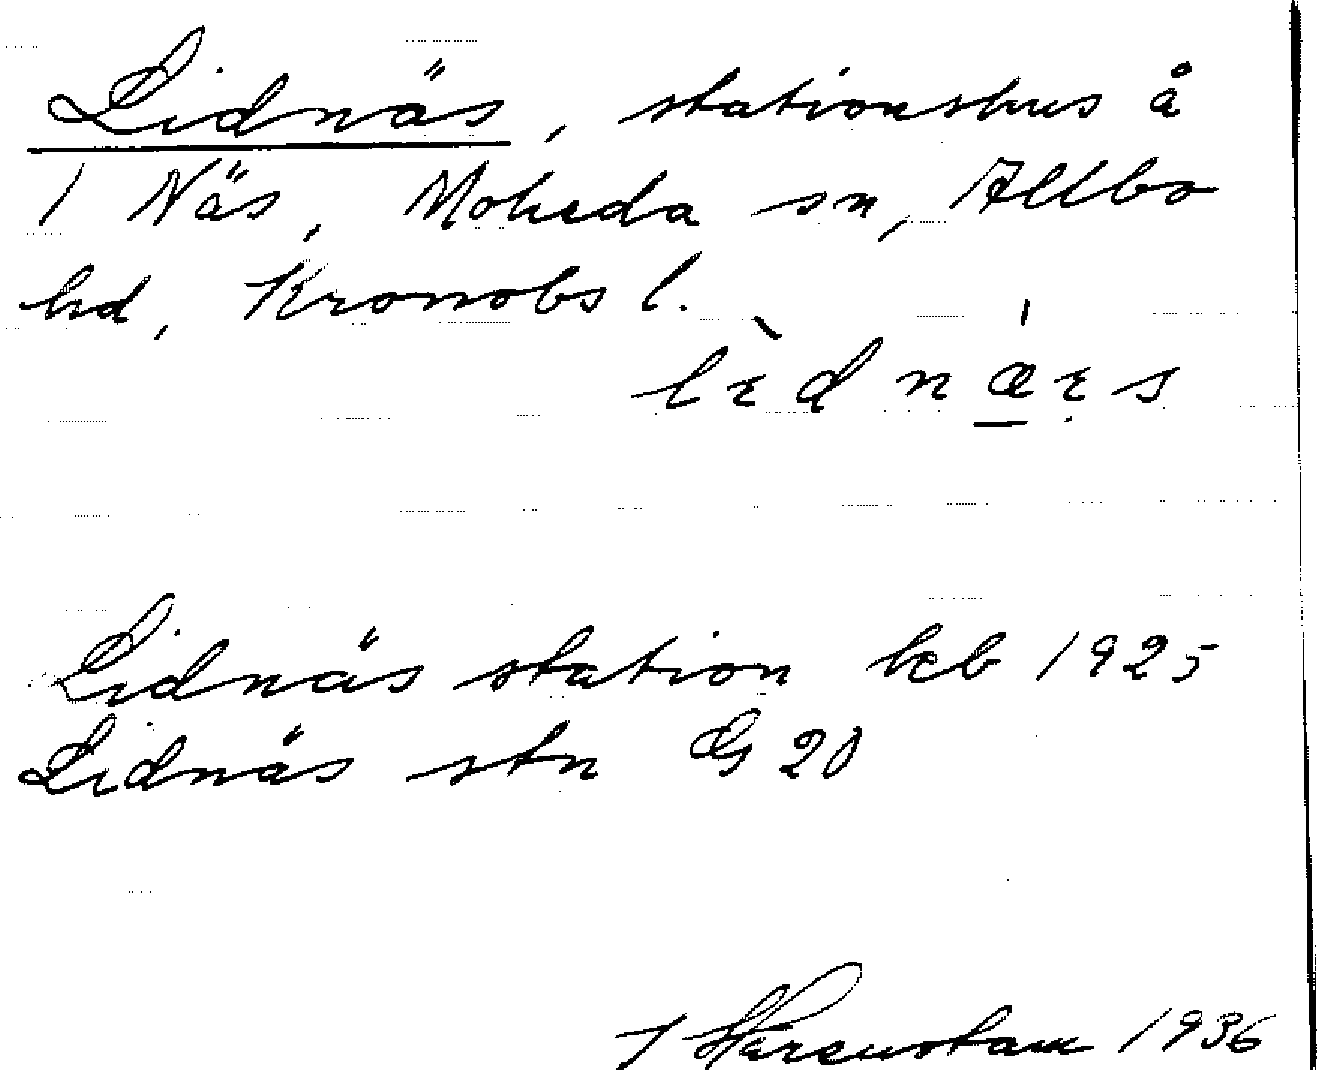 Lidnäs, stationshus å
1 Näs, Moheda sn, Allbo
hd, Kronobs l.
lìdnǽ̲ɛs
Lidnäs station kcb 1925
Lidnäs stn G 20
1936